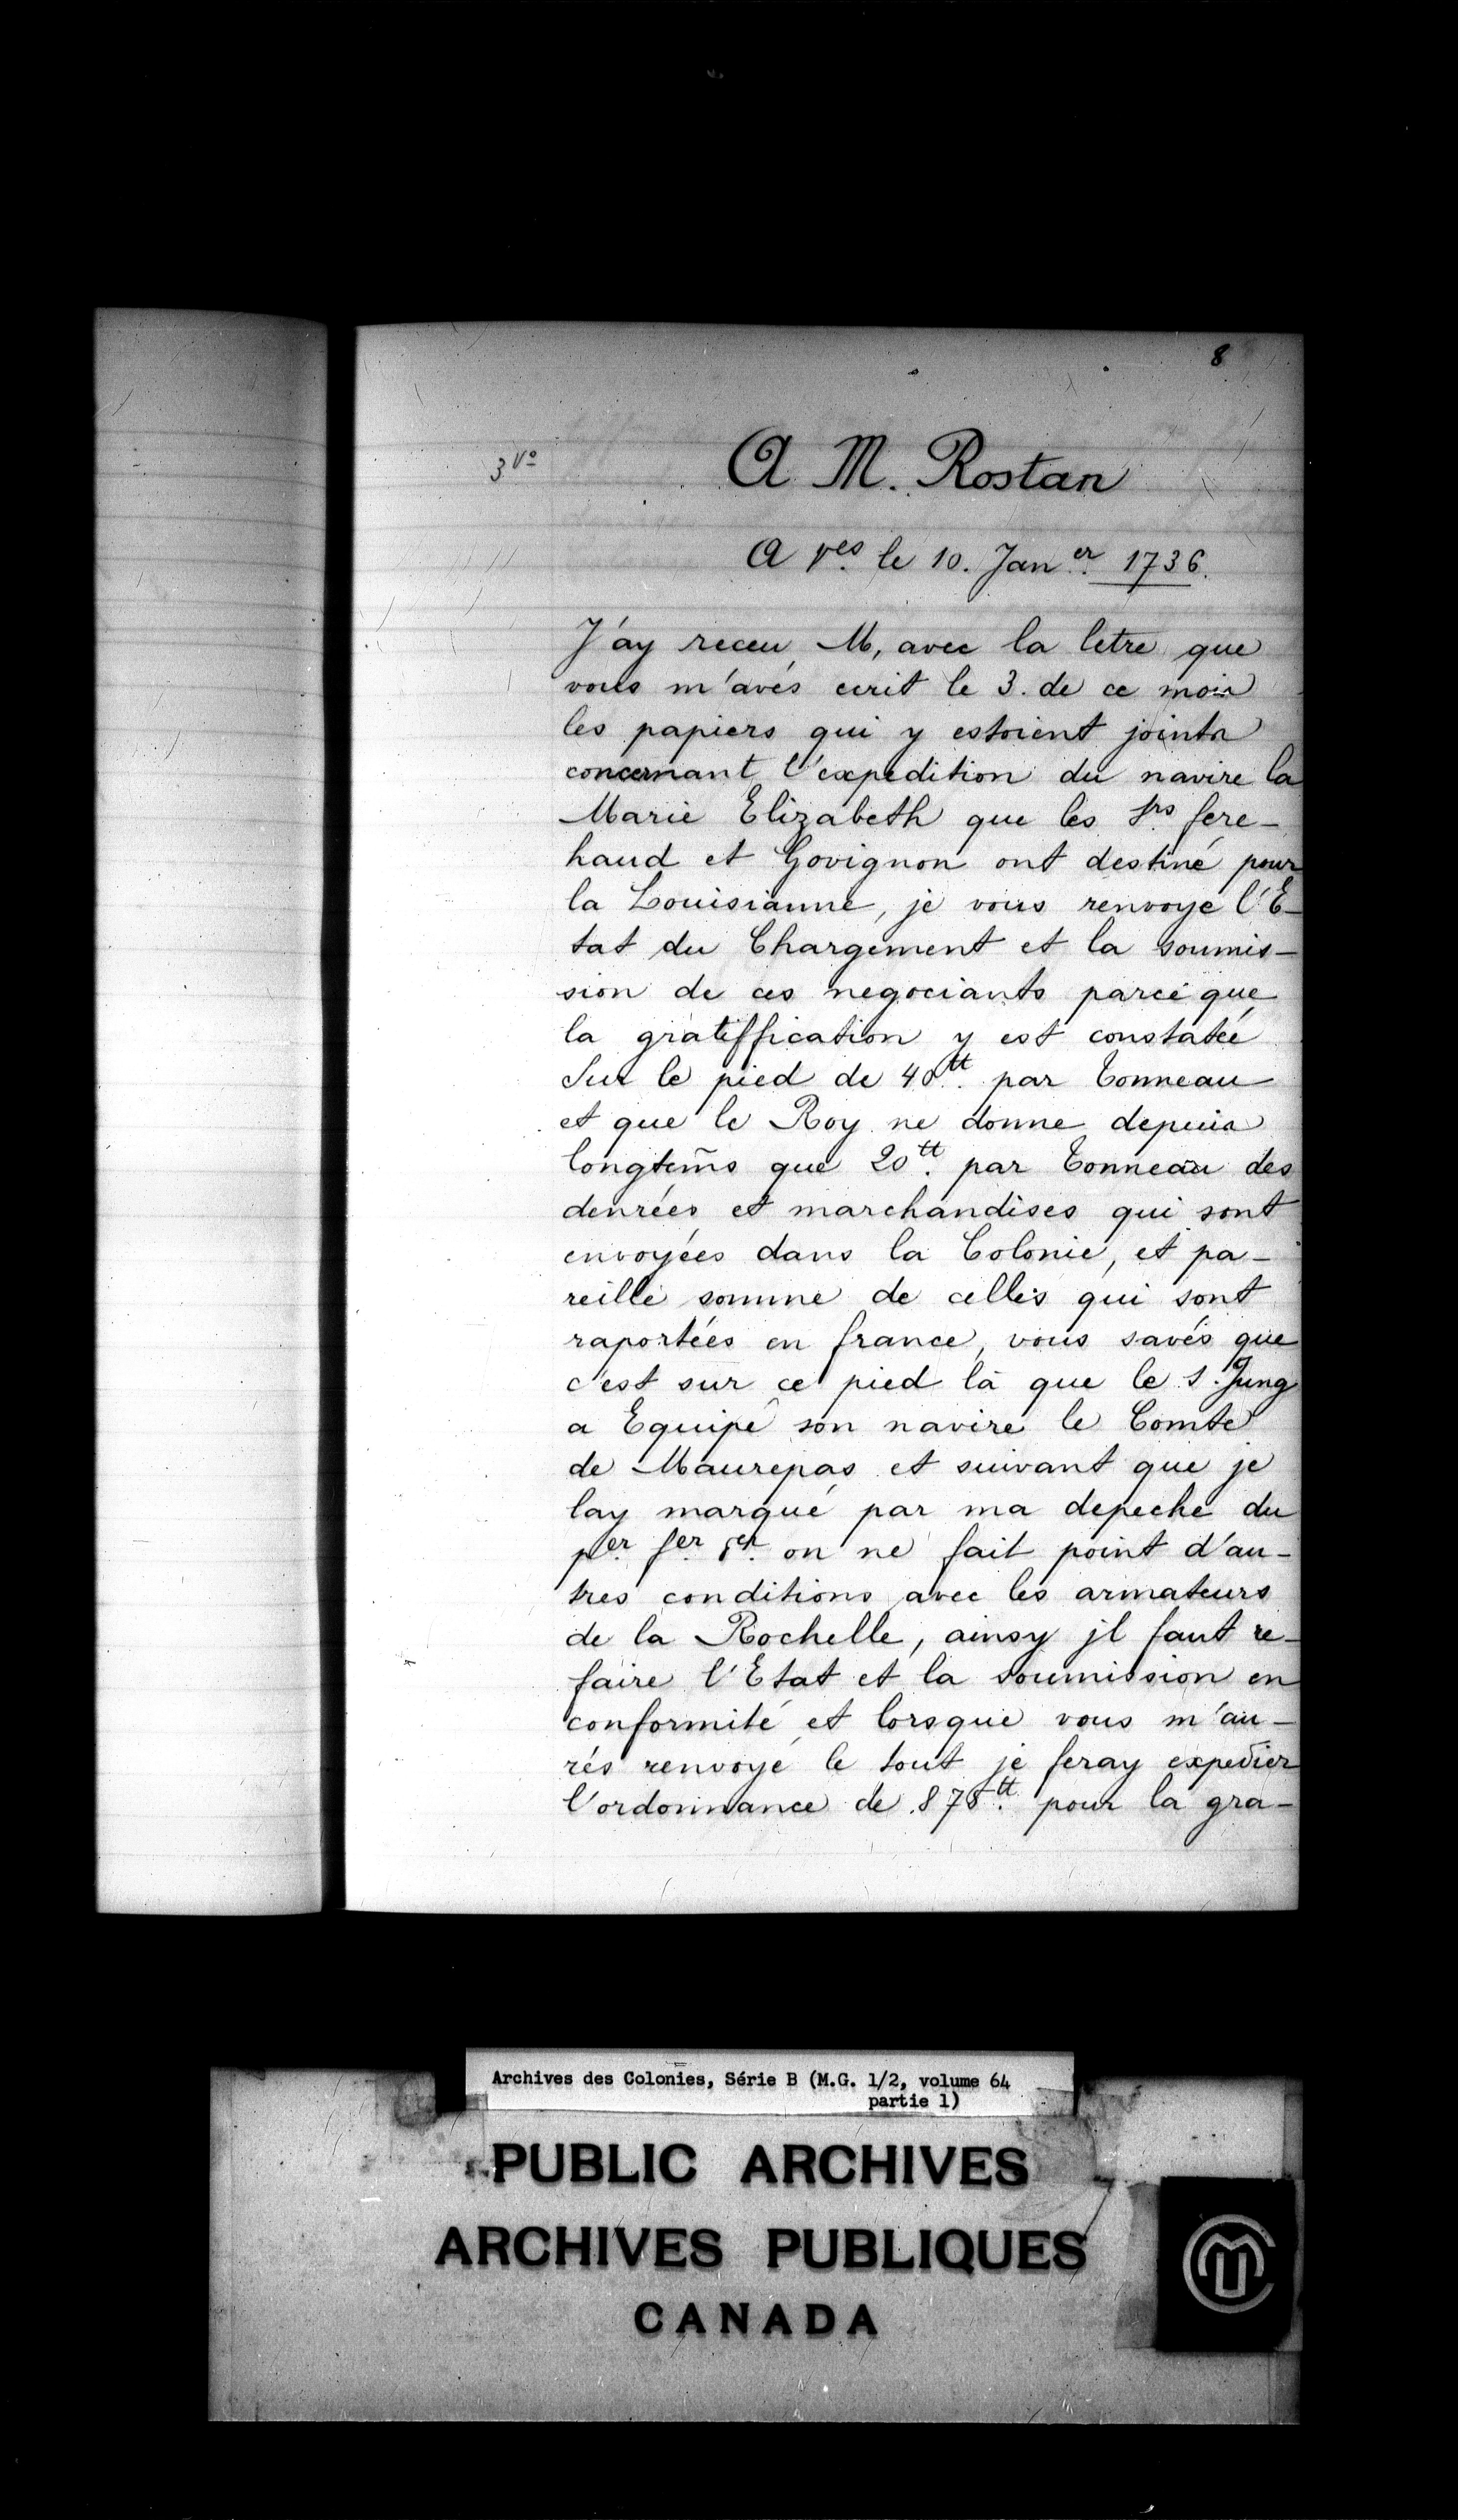 8
3 Vº
A M. Rostan
A Ves le 10. Janer 1736.
J'ay receu, M, avec la letre que
vous m'avés ecrit le 3. de ce mois
les papiers qui y estoient joints
concernant l'expedition du navire la
Marie Elizabeth que les Srs fere-
haud et Govignon ont destiné pour
la Louisianne, je vous renvoye l'E-
tat du Chargement et la soumis-
sion de ces negociants parce que
la gratiffication y est constatée
Sur le pied de 40tt. par Tonneau
et que le Roy ne donne depuis
longtem̃s que 20tt. par Tonneau des
denrées et marchandises qui sont
envoyées dans la Colonie, et pa-
reille somme de celles qui sont
raportées en france, vous savés que
c'est sur ce pied là que le S. Jung
a Equipé son navire le Comte
de Maurepas et suivant que je
lay marqué par ma depeche du
per on ne fait point d'au-
tres conditions avec les armateurs
de la Rochelle, ainsy jl faut re-
faire l'Etat et la soumission en
conformité et lorsque vous m'au-
rés renvoyé le tout je feray expedier
l'ordonnance de 878tt. pour la gra-
Archives des Colonies, Série B (M.G. 1/2, volume 64
partie 1)
PUBLIC ARCHIVES
ARCHIVES PUBLIQUES
CANADA